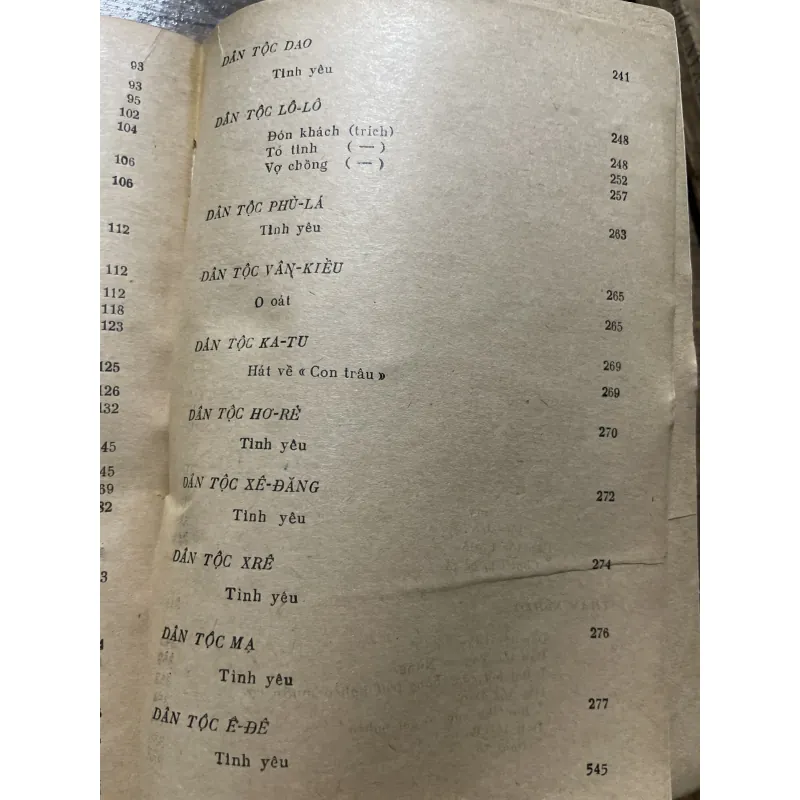 93
93
95
102
104
106
106
112
112
112
118
123
125
126
132
45
45
69
82
3
DÂN TỘC DAO
Tình yêu 241
DÂN TỘC LÔ-LÔ
Đón khách (trích) 248
Tỏ tình ( — ) 248
Vợ chồng ( — ) 252
257
DÂN TỘC PHÙ-LÁ
Tình yêu 263
DÂN TỘC VÂN-KIỀU 265
O oát 265
DÂN TỘC KA-TU 269
Hát về « Con trâu » 269
DÂN TỘC HƠ-RÊ
Tình yêu 270
DÂN TỘC XÊ-ĐĂNG
Tình yêu 272
DÂN TỘC XRÊ
Tình yêu 274
DÂN TỘC MẠ
Tình yêu 276
DÂN TỘC Ê-ĐÊ 277
Tình yêu
545